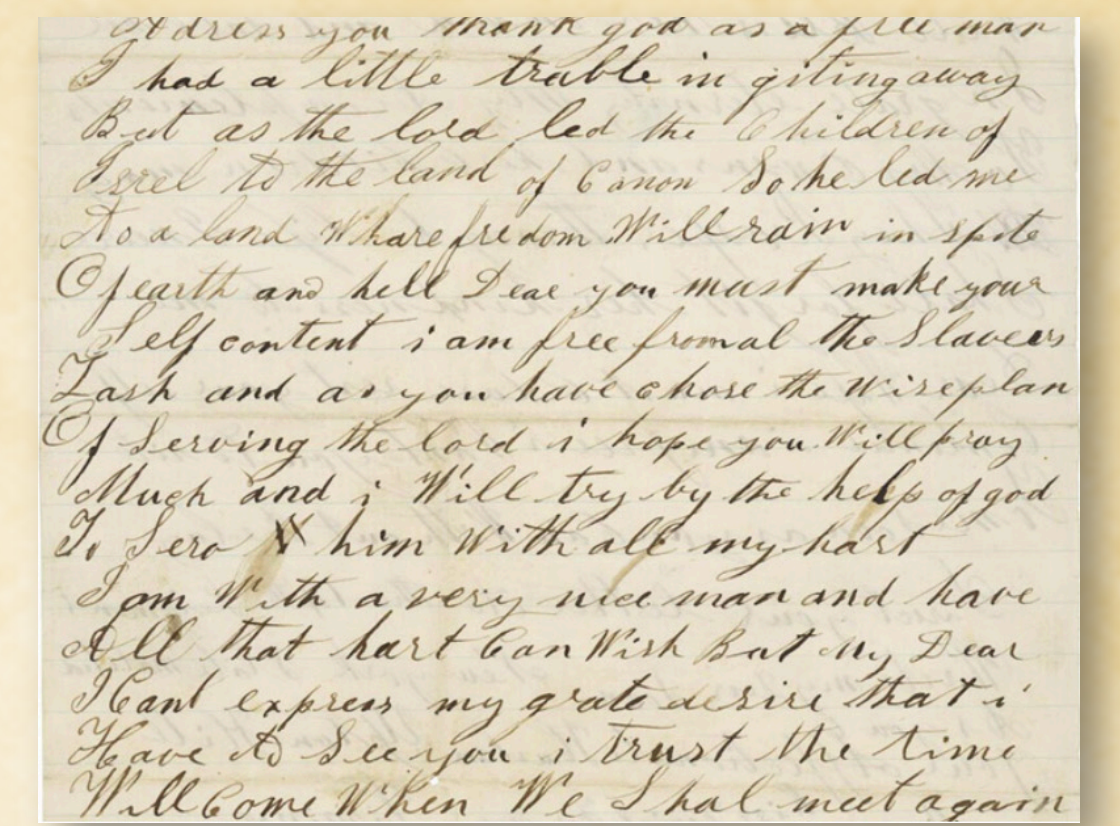 Adress you thank god as a free man
I had a little truble in giting away
But as the lord led the Children of
Isrel to the land of Canon So he led me
To a land Whare fredom Will rain in spite
Of earth and hell Dear you must make your
Self content i am free from al the Slavers
Lash and as you have chose the Wise plan
Of Serving the lord i hope you Will pray
Much and i Will try by the help of god
To Serv him With all my hart
I am With a very nice man and have
All that hart Can Wish But My Dear
I Cant express my grate desire that i
Have to See you i trust the time
Will Come When We Shal meet again